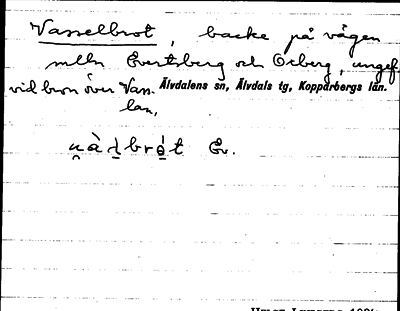 Vasselbrot, backe på vägen
mlln Evertsberg och Oxberg, ungef.
vid bron över Vass-
Älvdalens sn, Älvdals tg, Kopparbergs län.
lan,
Ev.